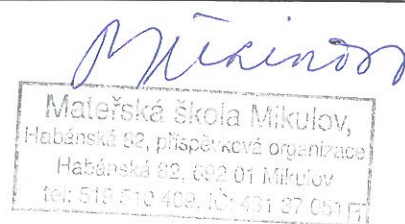 Mateřská škola Mikulov,
Habánská 82, příspěvková organizace
Habánská 82, 692 01 Mikulov
tel: 519 510 IČ: 491 37 051